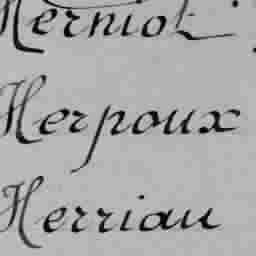 Herniot
Herpoux
Herriau